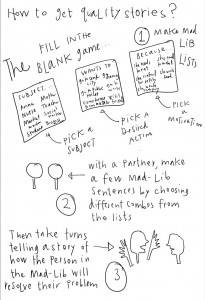 How to get quality stories?
FILL IN THE
The BLANK game...
① MAKE MAD
LIB
LISTS
SUBJECT...
WANTS TO
BECAUSE
PICK A
SUBJECT
PICK A
DESIRED
ACTION
PICK A
MOTIVATION
②
with a partner, make
a few Mad-Lib
sentences by choosing
different combos from
the lists
Then take turns
telling a story of
how the person in
the Mad-Lib will
resolve their problem
③